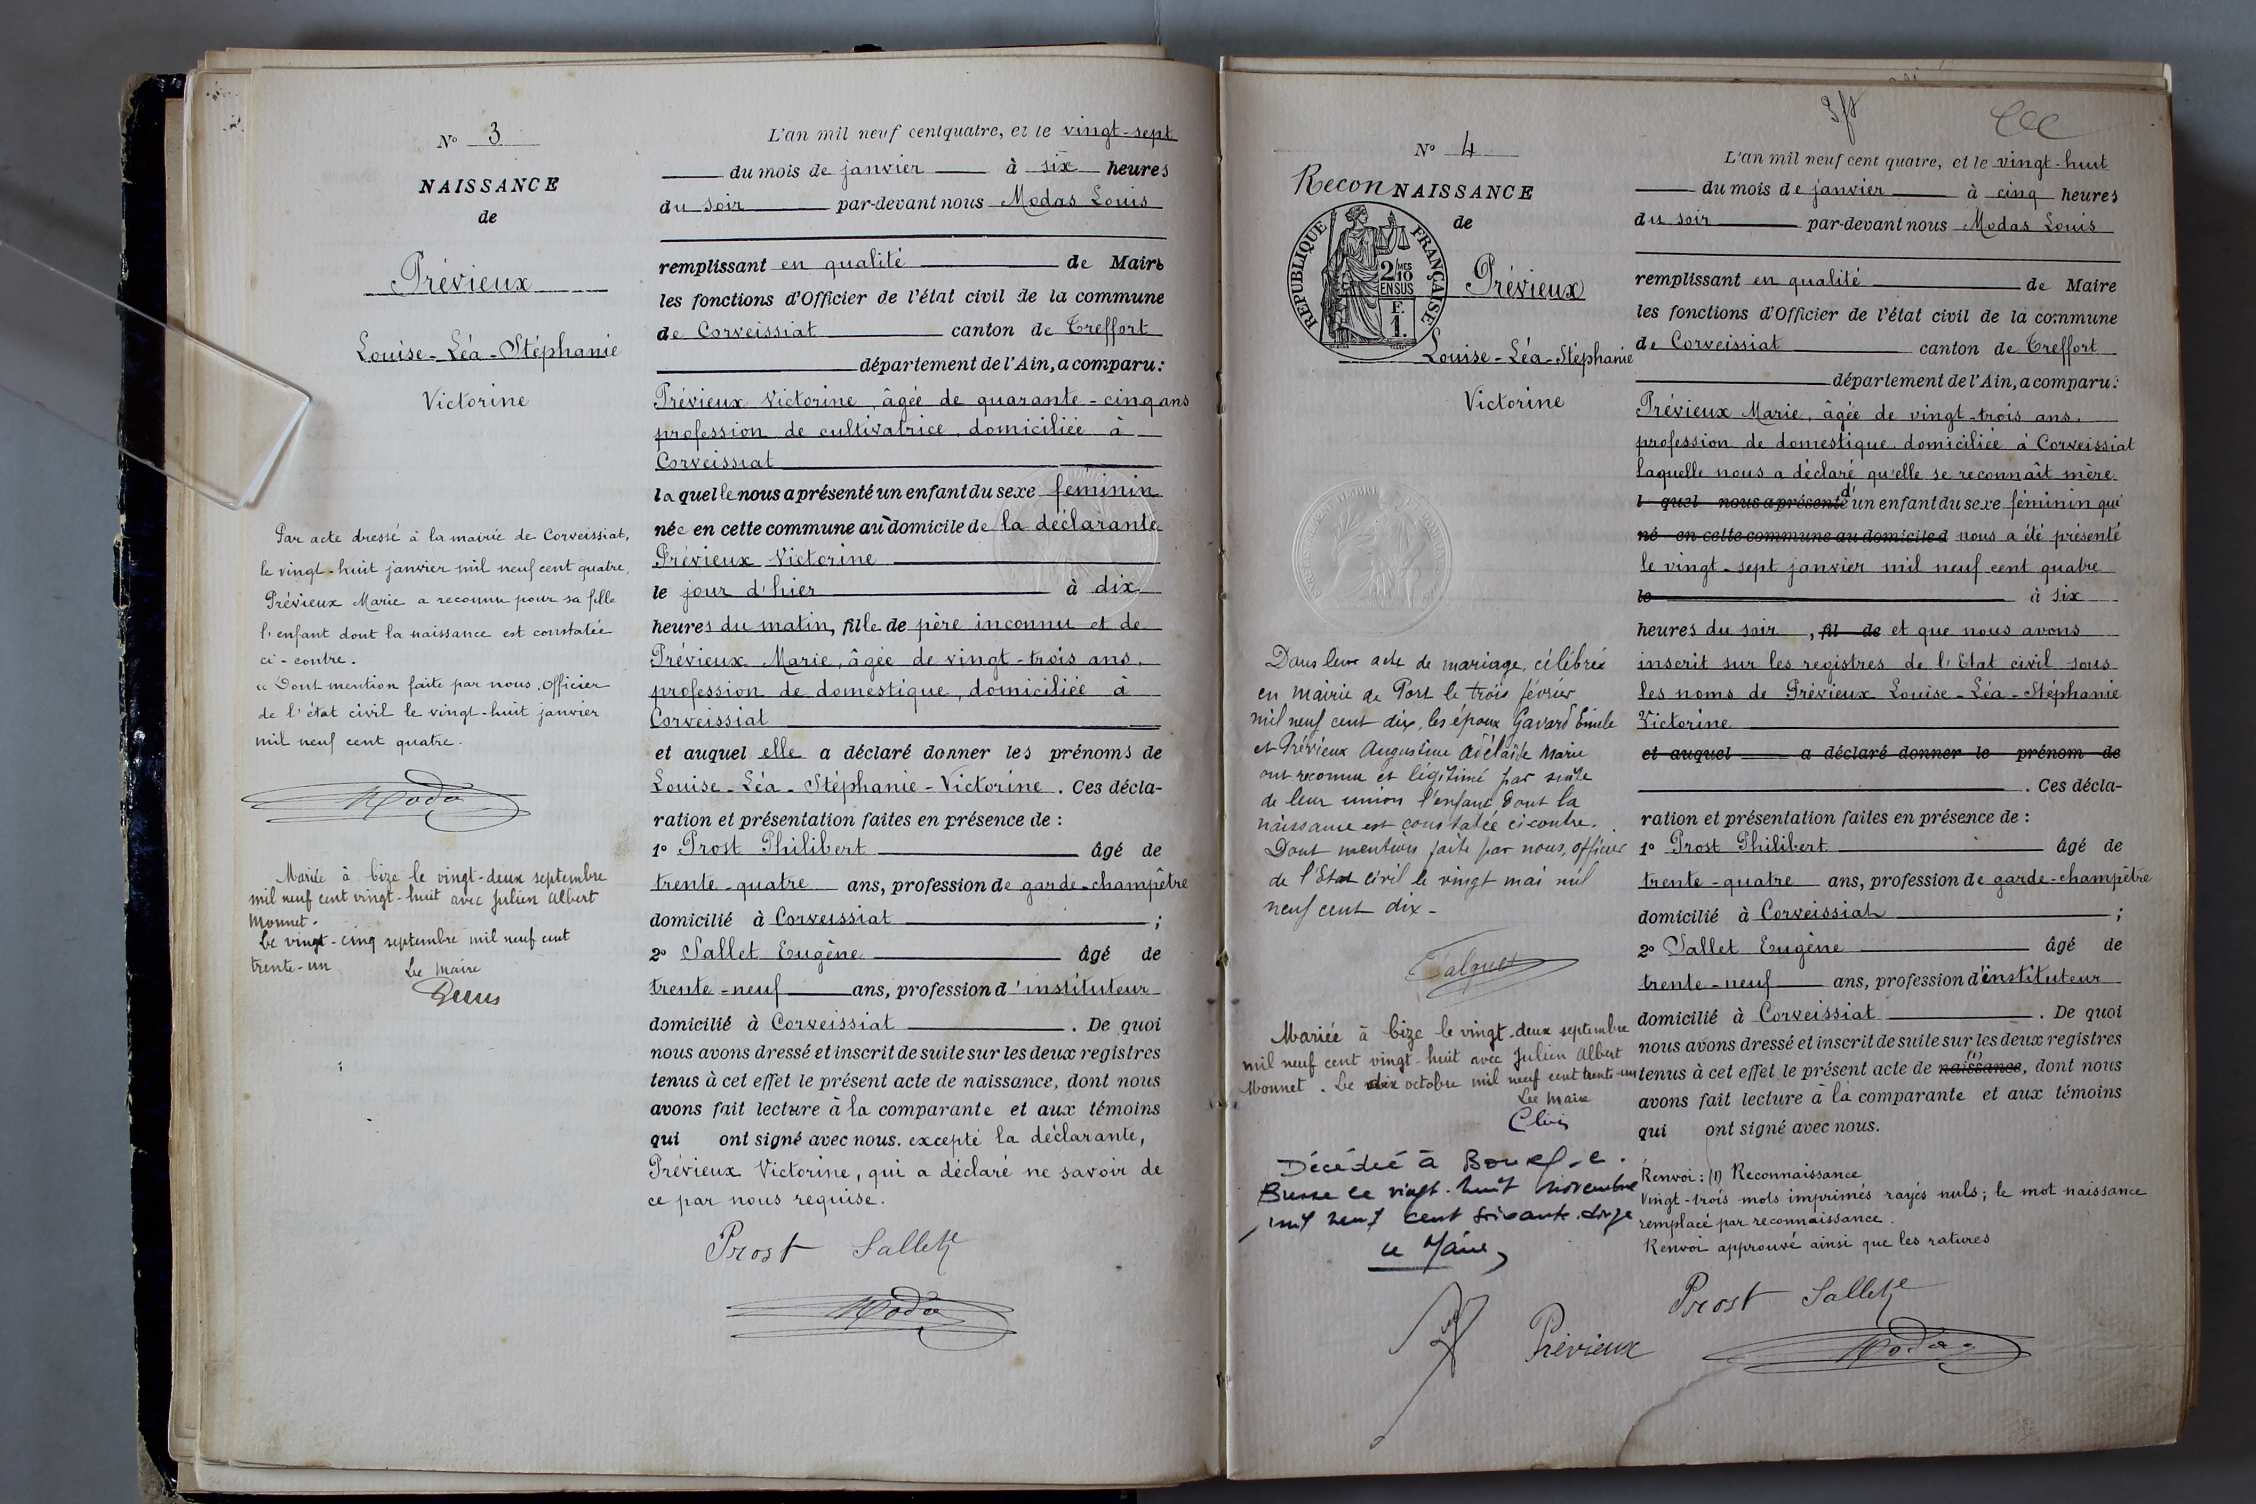 N° 3
NAISSANCE
de
Prévieux
Louise-Léa-Stéphanie
Victorine
Par acte dressé à la mairie de Corveissiat,
le vingt-huit janvier mil neuf cent quatre,
Prévieux Marie a reconnu pour sa fille
l'enfant dont la naissance est constatée
ci-contre.
Dont mention faite par nous, Officier
de l'état civil le vingt-huit janvier
mil neuf cent quatre.
Modas
Mariée à Cize le vingt-deux septembre
mil neuf cent vingt-huit avec Julien Albert
Monnet.
Le vingt-cinq septembre mil neuf cent
trente-un
Le Maire
L'an mil neuf cent quatre, et le vingt-sept
du mois de janvier à six heures
du soir par-devant nous Modas Louis
remplissant en qualité de Maire
les fonctions d'Officier de l'état civil de la commune
de Corveissiat canton de Treffort
département de l'Ain, a comparu:
Prévieux Victorine, âgée de quarante-cinq ans
profession de cultivatrice, domiciliée à
Corveissiat
laquelle nous a présenté un enfant du sexe féminin
née en cette commune au domicile de la déclarante
Prévieux Victorine
le jour d'hier à dix
heures du matin, fille de père inconnu et de
Prévieux Marie, âgée de vingt-trois ans,
profession de domestique, domiciliée à
Corveissiat
et auquel elle a déclaré donner les prénoms de
Louise-Léa-Stéphanie-Victorine. Ces décla-
ration et présentation faites en présence de :
1° Prost Philibert âgé de
trente-quatre ans, profession de garde-champêtre
domicilié à Corveissiat ;
2° Sallet Eugène âgé de
trente-neuf ans, profession d'instituteur
domicilié à Corveissiat. De quoi
nous avons dressé et inscrit de suite sur les deux registres
tenus à cet effet le présent acte de naissance, dont nous
avons fait lecture à la comparante et aux témoins
qui ont signé avec nous. excepté la déclarante,
Prévieux Victorine, qui a déclaré ne savoir de
ce par nous requise.
Prost Sallet
Modas
N° 4
ReconNAISSANCE
de
RÉPUBLIQUE FRANÇAISE
2/10 MES
EN SUS
F.
1.
Prévieux
Louise-Léa-Stéphanie
Victorine
Dans leur acte de mariage, célébré
en mairie de Port le trois février
mil neuf cent dix, les époux Gavard Emile
et Prévieux Augustine Adélaïde Marie
ont reconnu et légitimé par suite
de leur union l'enfant dont la
naissance est constatée ci contre.
Dont mention faite par nous, officier
de l'Etat civil le vingt mai mil
neuf cent dix-
Mariée à Cize le vingt-deux septembre
mil neuf cent vingt-huit avec Julien Albert
Monnet. Le dix octobre mil neuf cent trente-un
Le Maire
Décédée à Bourg-e.
Bresse le vingt-huit novembre
mil neuf cent soixante-
Le Maire
L'an mil neuf cent quatre, et le vingt-huit
du mois de janvier à cinq heures
du soir par-devant nous Modas Louis
remplissant en qualité de Maire
les fonctions d'Officier de l'état civil de la commune
de Corveissiat canton de Treffort
département de l'Ain, a comparu:
Prévieux Marie, âgée de vingt-trois ans,
profession de domestique, domiciliée à Corveissiat
laquelle nous a déclaré qu'elle se reconnaît mère
l quel nous a présenté d'un enfant du sexe féminin qui
né en cette commune au domicile d nous a été présenté
le vingt-sept janvier mil neuf cent quatre
le à six
heures du soir, fil de et que nous avons
inscrit sur les registres de l'Etat civil sous
les noms de Prévieux Louise-Léa-Stéphanie
Victorine
et auquel a déclaré donner le prénom de
. Ces décla-
ration et présentation faites en présence de :
1° Prost Philibert âgé de
trente-quatre ans, profession de garde-champêtre
domicilié à Corveissiat ;
2° Sallet Eugène âgé de
trente-neuf ans, profession d'instituteur
domicilié à Corveissiat. De quoi
nous avons dressé et inscrit de suite sur les deux registres
tenus à cet effet le présent acte de naissance (1), dont nous
avons fait lecture à la comparante et aux témoins
qui ont signé avec nous.
Renvoi : (1) Reconnaissance
Vingt-trois mots imprimés rayés nuls ; le mot naissance
remplacé par reconnaissance.
Renvoi approuvé ainsi que les ratures
Prost Sallet
Prévieux Modas